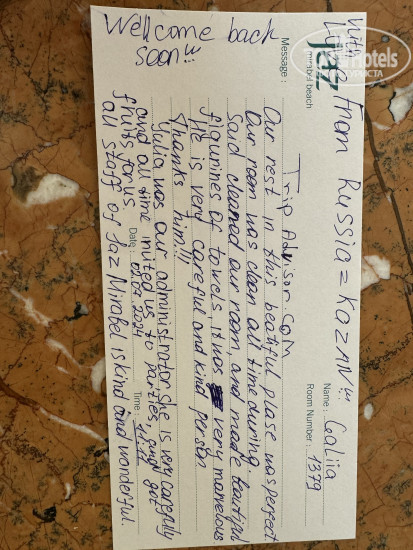 With love From Russia = KAZAN!!!
jaz
mirabel beach
Hotels
Name : Galiia
Room Number : 1379
Message :
Trip Advisor.COM
Our rest in this beautiful plase was perfect
Our room was clean all time during
Said cleaned our room, and made beautiful
figurines of towels it was very marvelous
He is very careful and kind person
Thanks him!!!
Julia was our administrator She is very carefully
and all time invited us to parties and got
fruits for us
Date : 09.07.2024 Time :
all staff of Jaz Mirabel is kind and wonderful.
Wellcome back
soon!!!